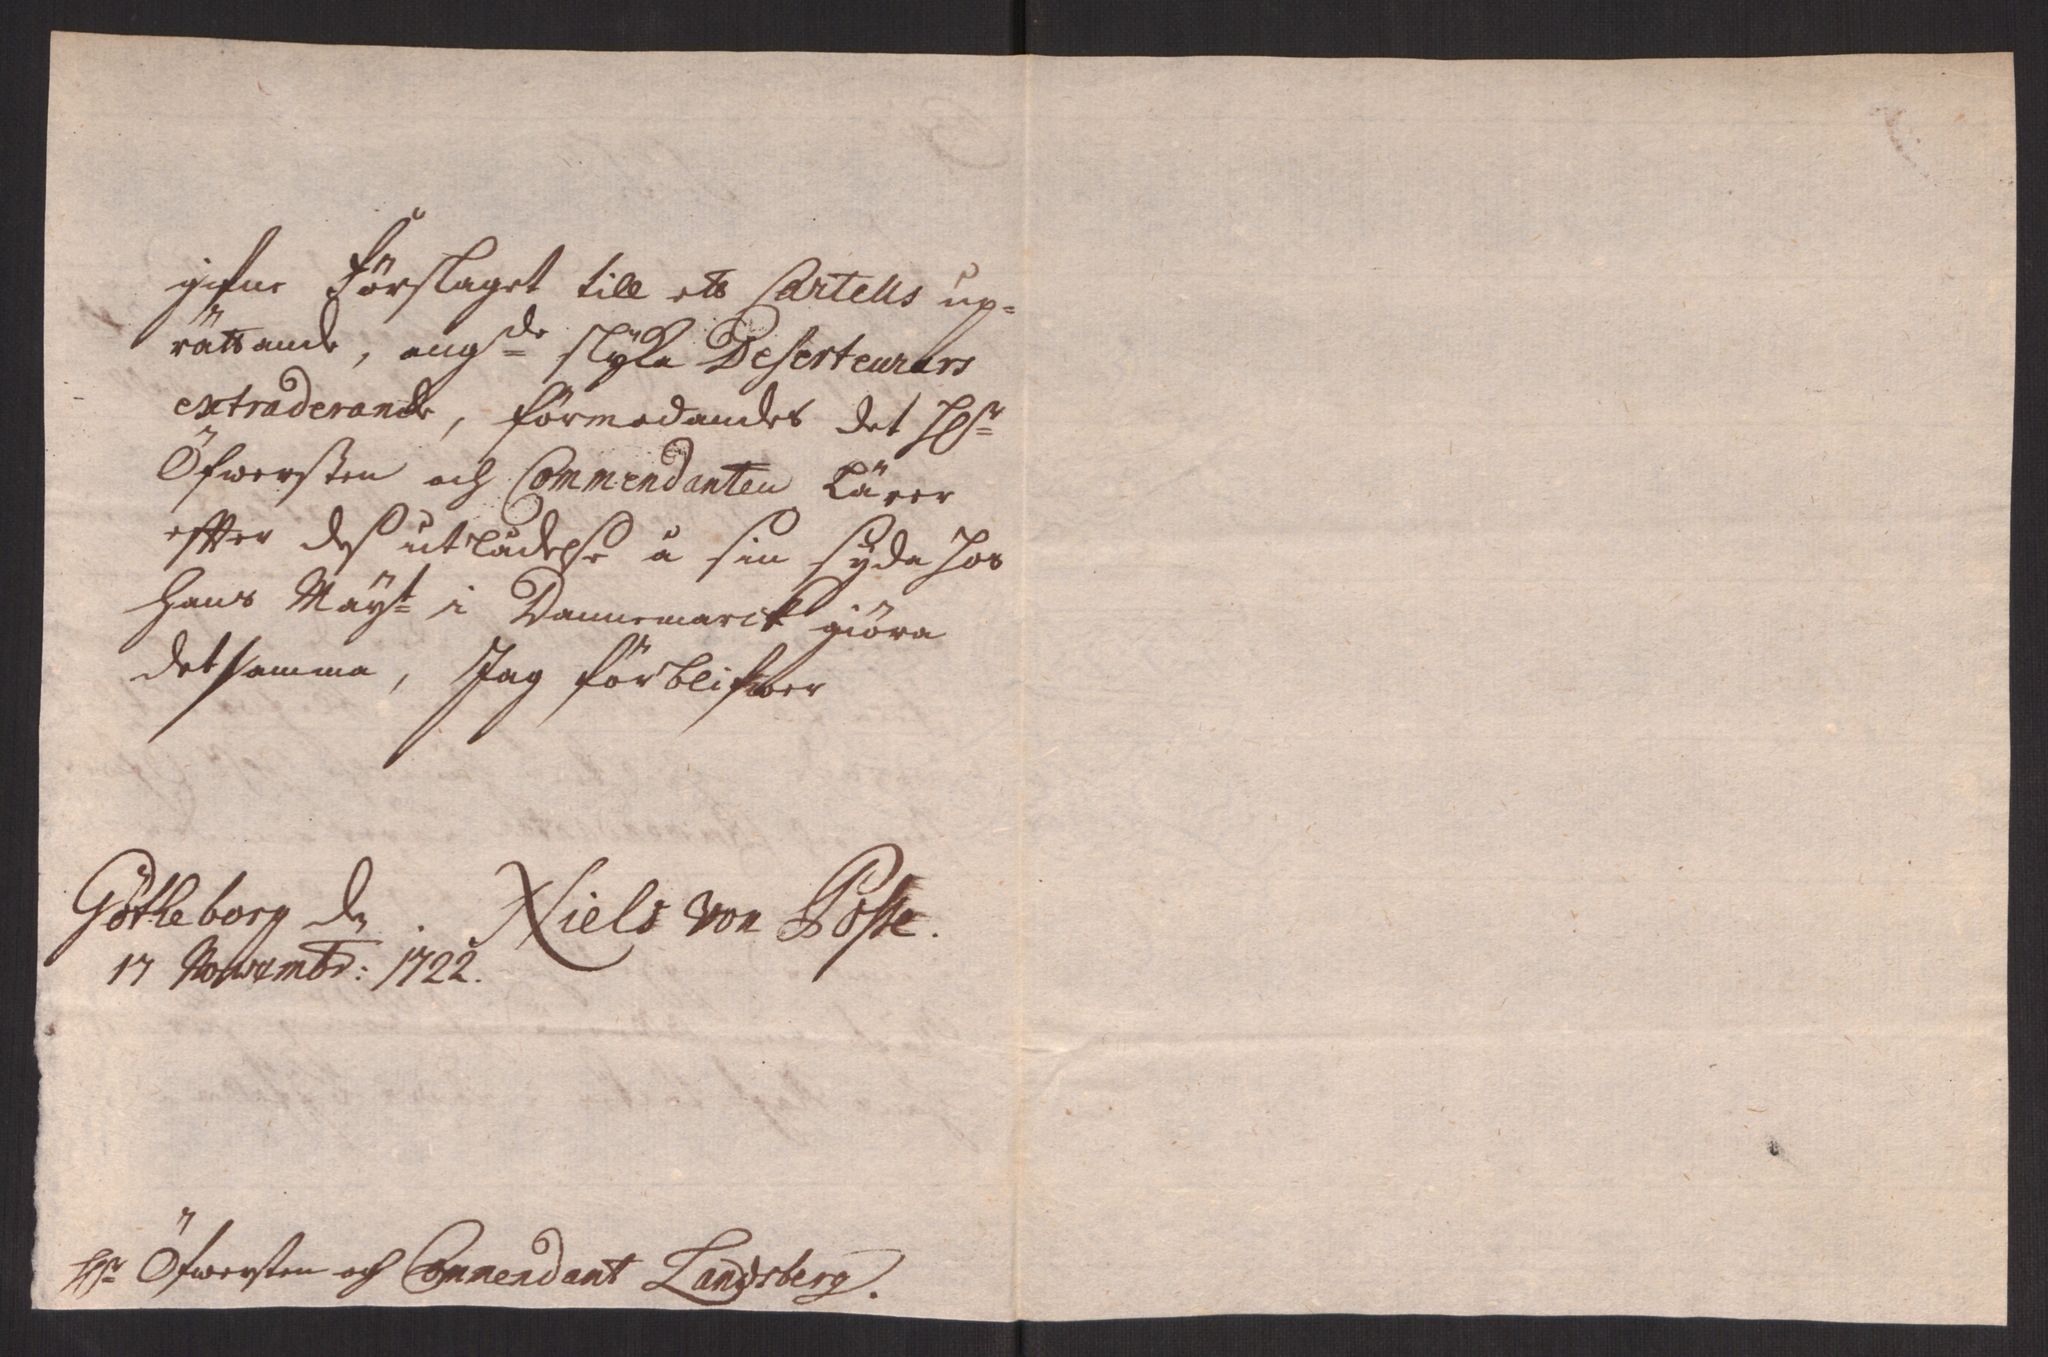 gifne Förslaget till ett Cartells up-
rättande, ang:de slÿka Deserteurers
extraderande, förmodandes det H:r
Öfwersten och Commendanten lärer
effter des utlådelse å sin syda hos
Hans Maÿ:t i Dannemarck giöra
det samma, Jag förblifwer
Götheborg d.
17 Novembr: 1722.
Niels von Posse.
H:r Öfwersten och Commendant Landsberg.